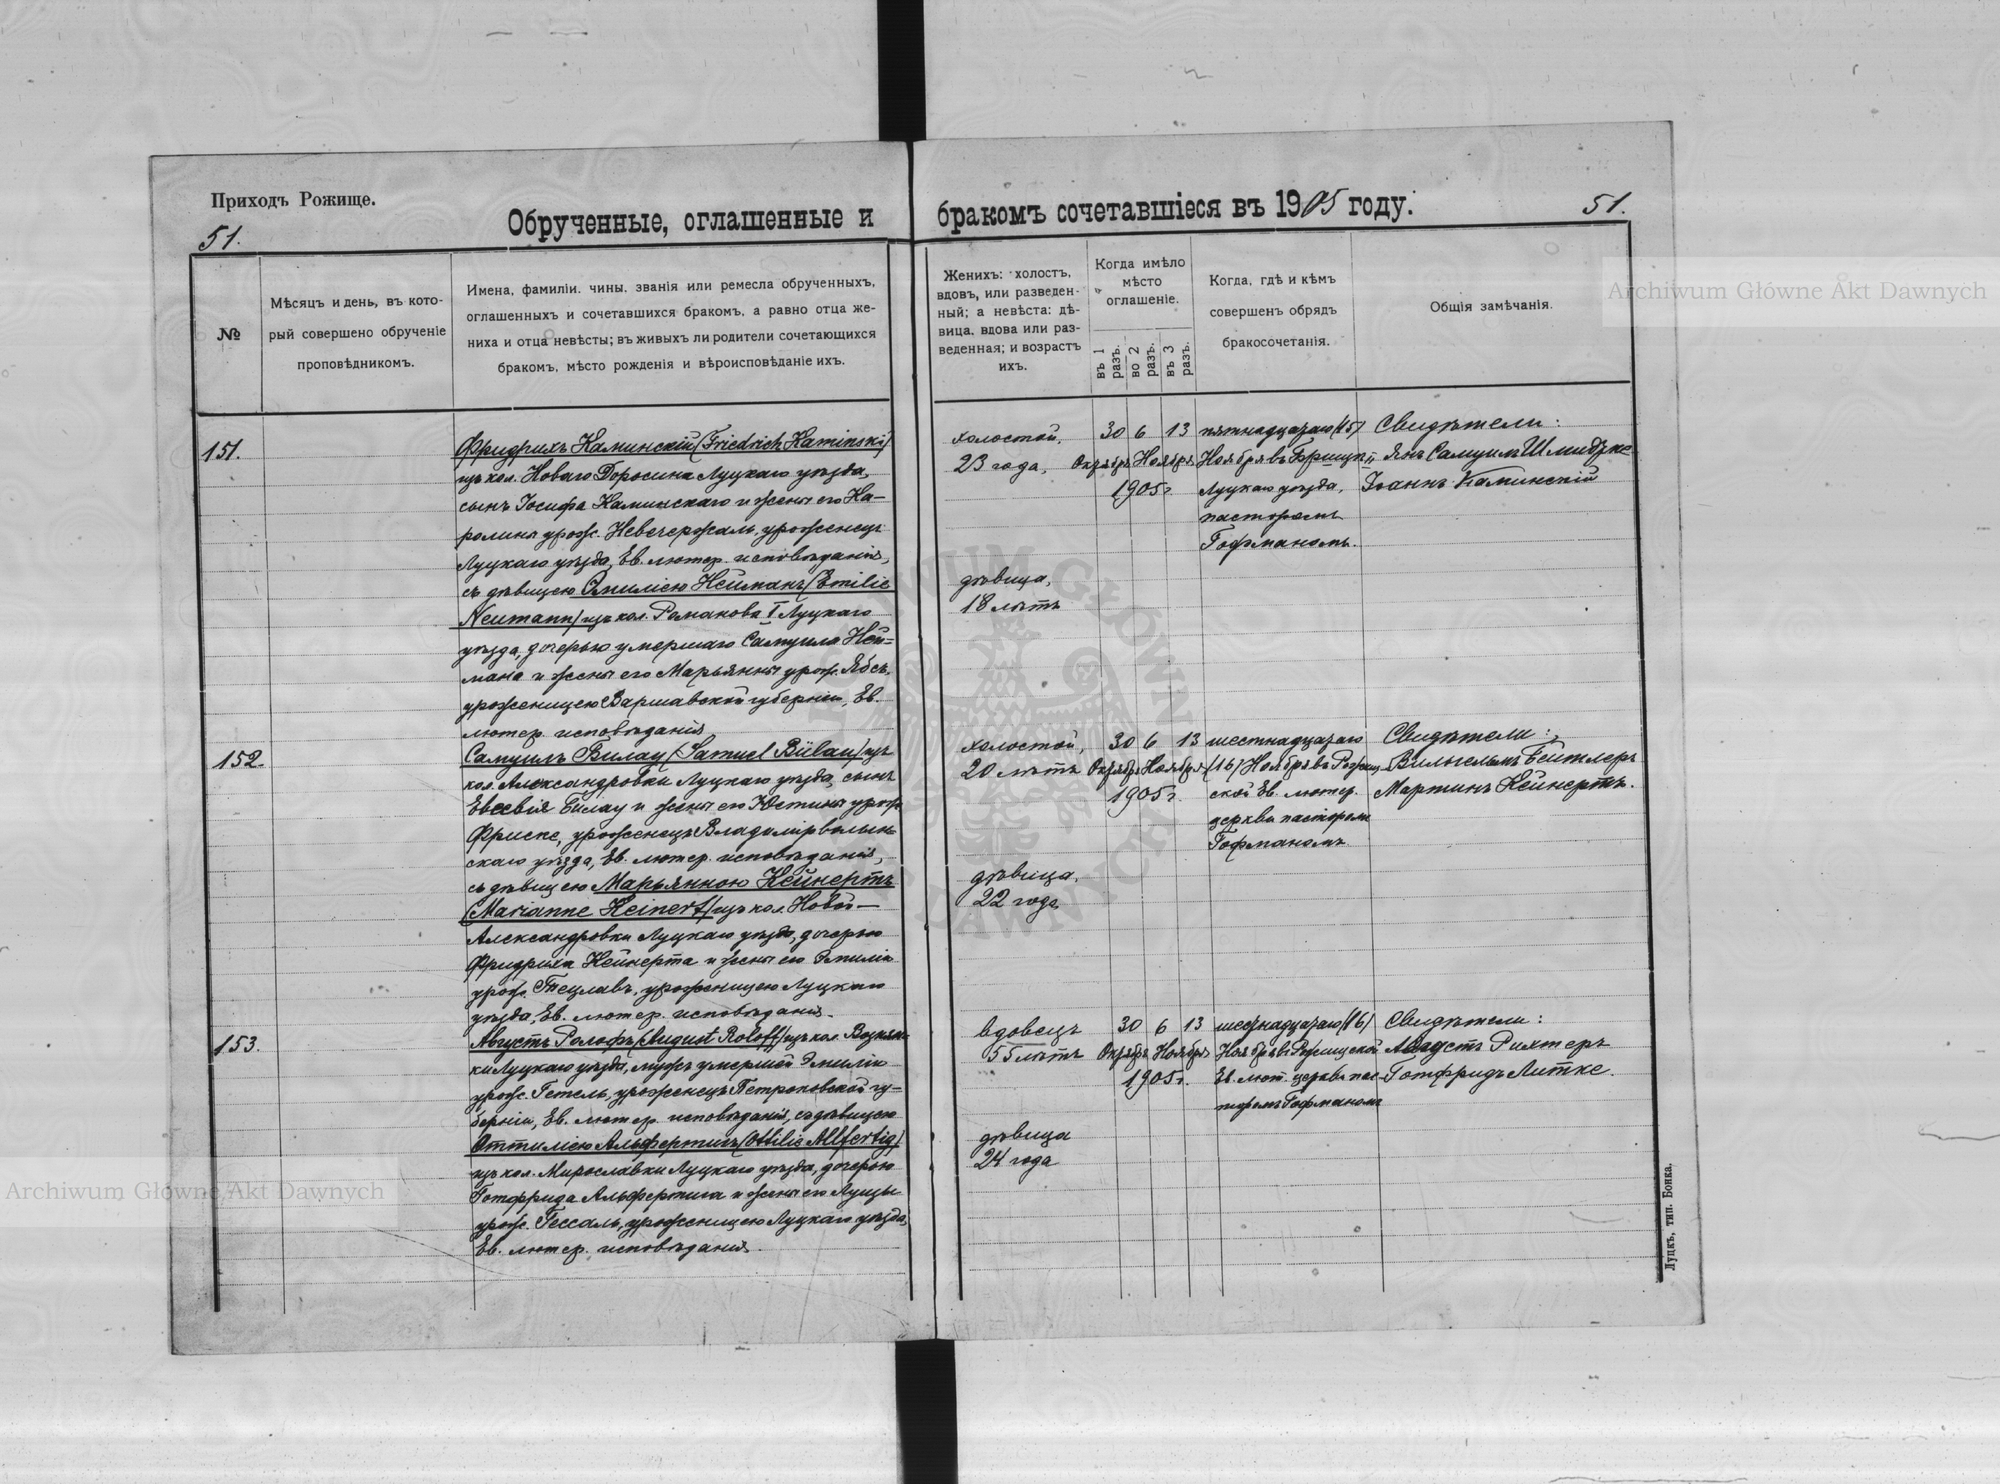 Приходъ Рожище.
51.
Обрученные, оглашенные и
бракомъ сочетавшіеся въ 1905 году.
51.
№
Мѣсяцъ и день, въ кото-
рый совершено обрученіе
проповѣдникомъ.
Имена, фамиліи, чины, званія или ремесла обрученныхъ,
оглашенныхъ и сочетавшихся бракомъ, а равно отца же-
ниха и отца невѣсты; въ живыхъ ли родители сочетающихся
бракомъ, мѣсто рожденія и вѣроисповѣданіе ихъ.
Женихъ: холостъ,
вдовъ, или разведен-
ный; а невѣста: дѣ-
вица, вдова или раз-
веденная; и возрастъ
ихъ.
Когда имѣло
мѣсто
оглашеніе.
въ 1 разъ.
во 2 разъ.
въ 3 разъ.
Когда, гдѣ и кѣмъ
совершенъ обрядъ
бракосочетанія.
Общія замѣчанія.
151.
Фридрихъ Каминскій (Friedrich Kaminski)
изъ кол. Новаго Доросина Луцкаго уѣзда,
сынъ Іосифа Каминскаго и жены его Ка-
ролины урож. Невечержаль, уроженецъ
Луцкаго уѣзда, Ев. лютер. исповѣданія,
съ дѣвицею Эмиліею Нейманъ (Emilie
Neumann) изъ кол. Романова I Луцкаго
уѣзда, дочерью умершаго Самуила Ней-
мана и жены его Марьянны урож. Ябсъ,
уроженицею Варшавской губерніи, Ев.
лютер. исповѣданія
холостой,
23 года,
30 6 13
Октября Ноября
1905 г.
дѣвица,
18 лѣтъ
пятнадцатаго (15)
Ноября въ
Луцкаго уѣзда,
пасторомъ
Гофманомъ.
Свидѣтели:
Янъ Самуилъ Шмидтке
Іоаннъ Каминскій
152.
Самуилъ Билау (Samuel Bülau) изъ
кол. Александровки Луцкаго уѣзда, сынъ
Евсевія Билау и жены его Юстины урож.
Фриске, уроженецъ Владимірволын-
скаго уѣзда, Ев. лютер. исповѣданія,
съ дѣвицею Марьянною Кейнертъ
(Marianne Keinert) изъ кол. Новой-
Александровки Луцкаго уѣзда, дочерью
Фридриха Кейнерта и жены его Эмиліи
урож. Тецлавъ, уроженицею Луцкаго
уѣзда, Ев. лютер. исповѣданія.
холостой,
20 лѣтъ
30 6 13
Октября Ноября
1905 г.
дѣвица,
22 года
шестнадцатаго
(16) Ноября въ Рожищ-
ской Ев. лютер.
церкви пасторомъ
Гофманомъ.
Свидѣтели:
Вильгельмъ Бейтлеръ
Мартинъ Кейнертъ.
153.
Августъ Ролофъ (August Roloff) изъ кол.
ки Луцкаго уѣзда, мужъ умершей Эмиліи
урож. Гетель, уроженецъ Петроковской гу-
берніи, Ев. лютер. исповѣданія, съ дѣвицею
Оттиліею Альфертигъ (Ottilie Allfertig)
изъ кол. Мирославки Луцкаго уѣзда, дочерью
Готфрида Альфертига и жены его Луизы
урож. Гессаль, уроженицею Луцкаго уѣзда,
Ев. лютер. исповѣданія.
вдовецъ
55 лѣтъ
30 6 13
Октября Ноября
1905 г.
дѣвица
24 года
шестнадцатаго (16)
Ноября въ Рожищской
Ев. лют. церкви пас-
торомъ Гофманомъ
Свидѣтели:
Августъ Рихтеръ
Готфридъ Литке.
Луцкъ, тип. Бонка.
Archiwum Główne Akt Dawnych
Archiwum Główne Akt Dawnych